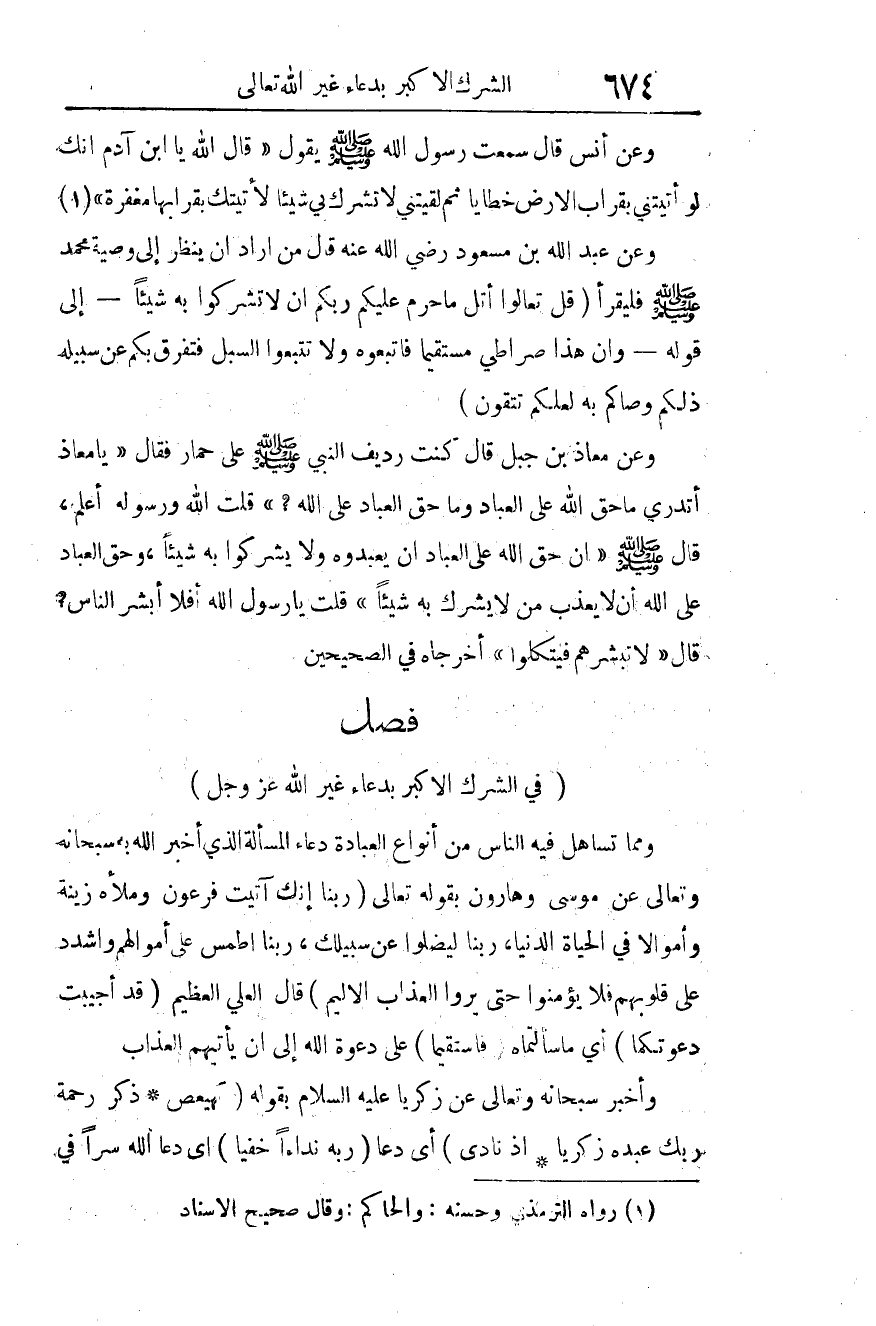 ٦٧٤ الشرك الاكبر بدعاء غير الله تعالى
وعن أنس قال سمعت رسول الله ﷺ يقول « قال الله يا ابن آدم انك
لو أتيتني بقراب الارض خطايا ثم لقيتني لا تشرك بي شيئا لأ تيتك بقرابها مغفرة» (١)
وعن عبد الله بن مسعود رضي الله عنه قال من اراد ان ينظر إلى وصية محمد
ﷺ فليقرأ ( قل تعالوا أتل ماحرم عليكم ربكم ان لاتشركوا به شيئاً — إلى
قوله — وان هذا صراطي مستقيما فاتبعوه ولا تتبعوا السبل فتفرق بكم عن سبيله
ذلكم وصاكم به لعلكم تتقون )
وعن معاذ بن جبل قال كنت رديف النبي ﷺ على حمار فقال « يامعاذ
أتدري ماحق الله على العباد وما حق العباد على الله ؟ » قلت الله ورسوله أعلم ،
قال ﷺ « ان حق الله على العباد ان يعبدوه ولا يشركوا به شيئاً ، وحق العباد
على الله أن لا يعذب من لايشرك به شيئاً » قلت يارسول الله أفلا أبشر الناس ؟
قال « لا تبشرهم فيتكلوا » أخرجاه في الصحيحين
فصل
( في الشرك الاكبر بدعاء غير الله عز وجل )
ومما تساهل فيه الناس من أنواع العبادة دعاء المسألة الذي أخبر الله به سبحانه
وتعالى عن موسى وهارون بقوله تعالى ( ربنا إنك آتيت فرعون وملأه زينة
وأموالا في الحياة الدنيا ، ربنا ليضلوا عن سبيلك ، ربنا اطمس على أموالهم واشدد
على قلوبهم فلا يؤمنوا حتى يروا العذاب الاليم ) قال العلي العظيم ( قد أجيبت
دعوتكما ) أي ماسألتماه ( فاستقيما ) على دعوة الله إلى ان يأتيهم العذاب
وأخبر سبحانه وتعالى عن زكريا عليه السلام بقوله ( كهيعص * ذكر رحمة
ربك عبده زكريا * اذ نادى ) أى دعا ( ربه نداءاً خفيا ) اى دعا الله سراً في
(١) رواه الترمذي وحسنه : والحاكم : وقال صحيح الاسناد